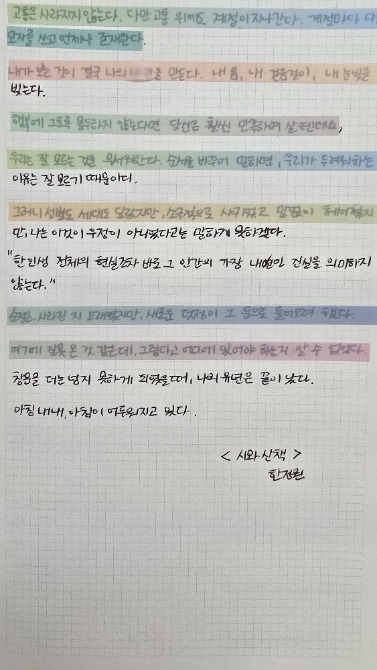 고통은 사라지지 않는다. 다만 고통 위에도 계절이 지나간다. 계절마다 다른
모자를 쓰고 언제나 존재한다.
내가 보는 것이 결국 나의 을 만든다. 내 몸, 내 걸음걸이, 내 눈빛을
빚는다.
행복에 그토록 몰두하지 않는다면 당신은 훨씬 만족하며 살 텐데요,
우리는 잘 모르는 것을 무서워한다. 순서를 바꾸어 말하면, 우리가 두려워하는
이유는 잘 모르기 때문이다.
그러니 성별도 세대도 달랐지만, 사귀었고 말없이 헤어졌지
만, 나는 이것이 우정이 아니었다고는 말하게 못하겠다.
"한 인생 전체의 현실조차 바로 그 인간의 가장 내밀인 진실을 의미하지
않는다."
사라진 지 오래됐지만, 새로운 그 문으로 들어오려 했다.
여기에 잘못 온 것 같은데, 그렇다고 어디에 있어야 하는지 알 수 없었다.
창문을 더는 넘지 못하게 되었을 때, 나의 유년은 끝이 났다.
아침 내내, 아침이 어두워지고 있다.
< 시와 산책 >
한정원